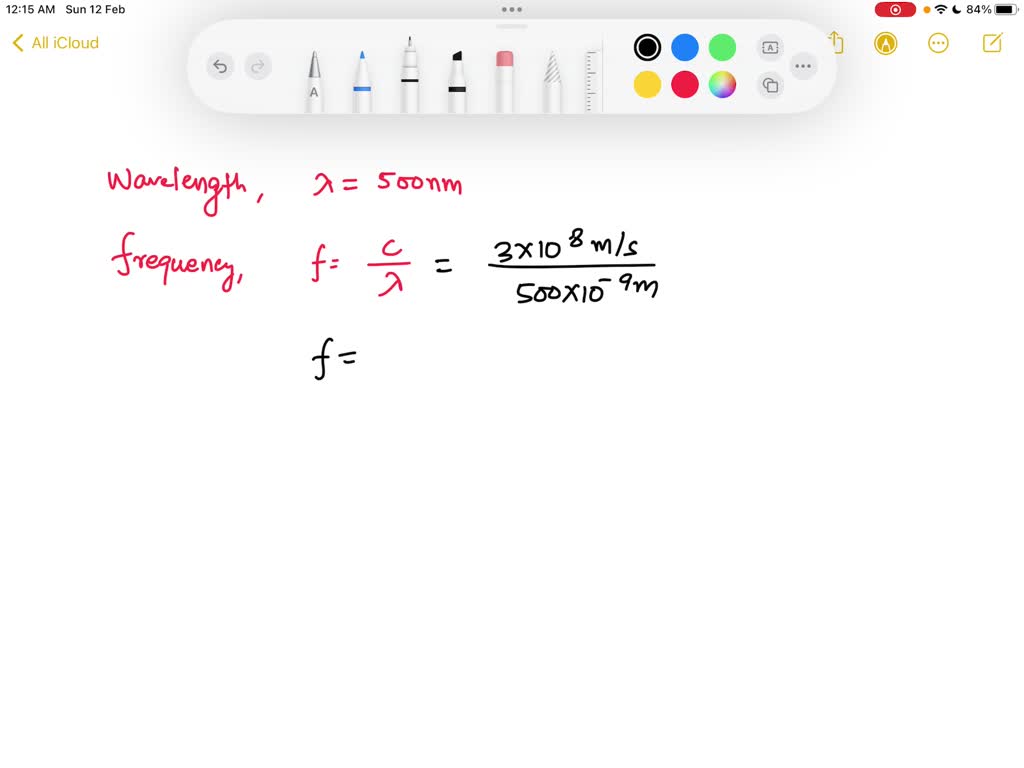 12:15 AM Sun 12 Feb 84%
All iCloud
A A
Wavelength, λ = 500nm
frequency, f = c/λ = 3×10⁸ m/s / 500×10⁻⁹m
f =